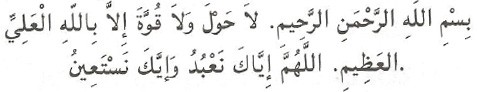 بِسْمِ اللهِ الرَّحْمَنِ الرَّحِيمِ. لاَ حَوْلَ وَلاَ قُوَّةَ إِلاَّ بِاللهِ الْعَلِيِّ
العَظِيمِ. اللَّهُمَّ إِيَّاكَ نَعْبُدُ وَإِيَّكَ نَسْتَعِينُ.